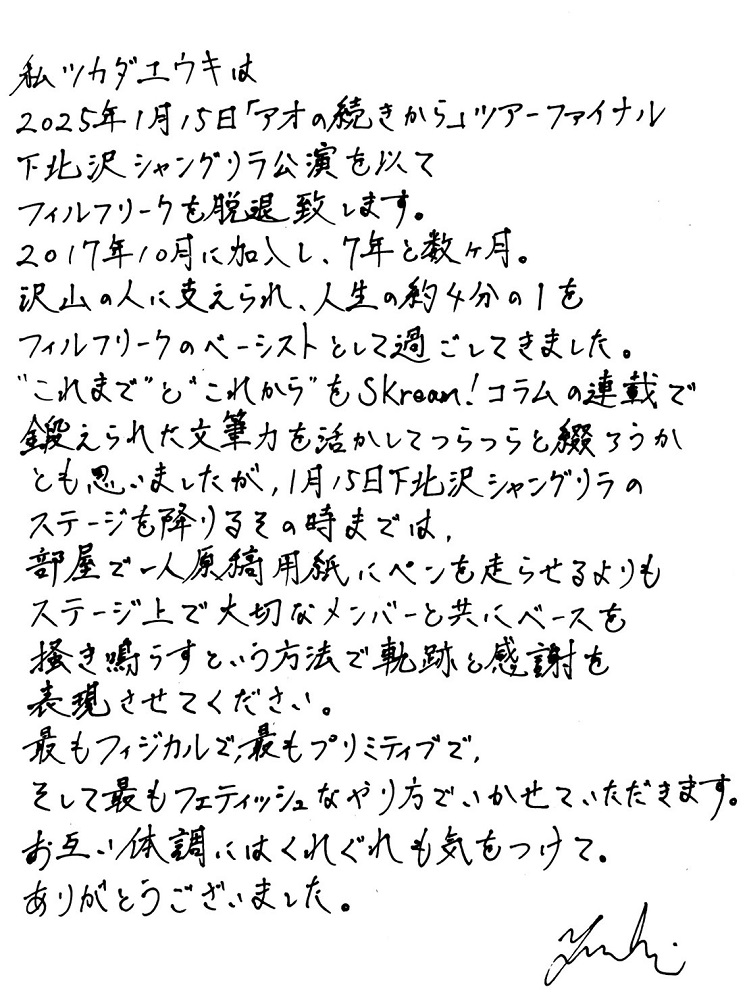 私ツカダユウキは
2025年1月15日「アオの続きから」ツアーファイナル
下北沢シャングリラ公演を以て
フィルフリークを脱退致します。
2017年10月に加入し、7年と数ヶ月。
沢山の人に支えられ、人生の約4分の1を
フィルフリークのベーシストとして過ごしてきました。
"これまで"と"これから"をSkream!コラムの連載で
鍛えられた文筆力を活かしてつらつらと綴ろうか
とも思いましたが、1月15日下北沢シャングリラの
ステージを降りるその時までは、
部屋で一人原稿用紙にペンを走らせるよりも
ステージ上で大切なメンバーと共にベースを
掻き鳴らすという方法で軌跡と感謝を
表現させてください。
最もフィジカルで、最もプリミティブで、
そして最もフェティッシュなやり方でいかせていただきます。
お互い体調にはくれぐれも気をつけて。
ありがとうございました。
Yuuki